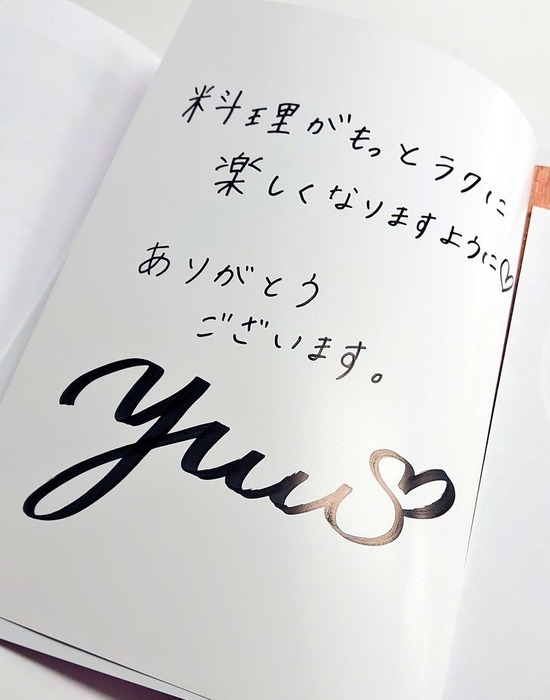 料理がもっとラクに
楽しくなりますように♡
ありがとう
ございます。
Yuu♡